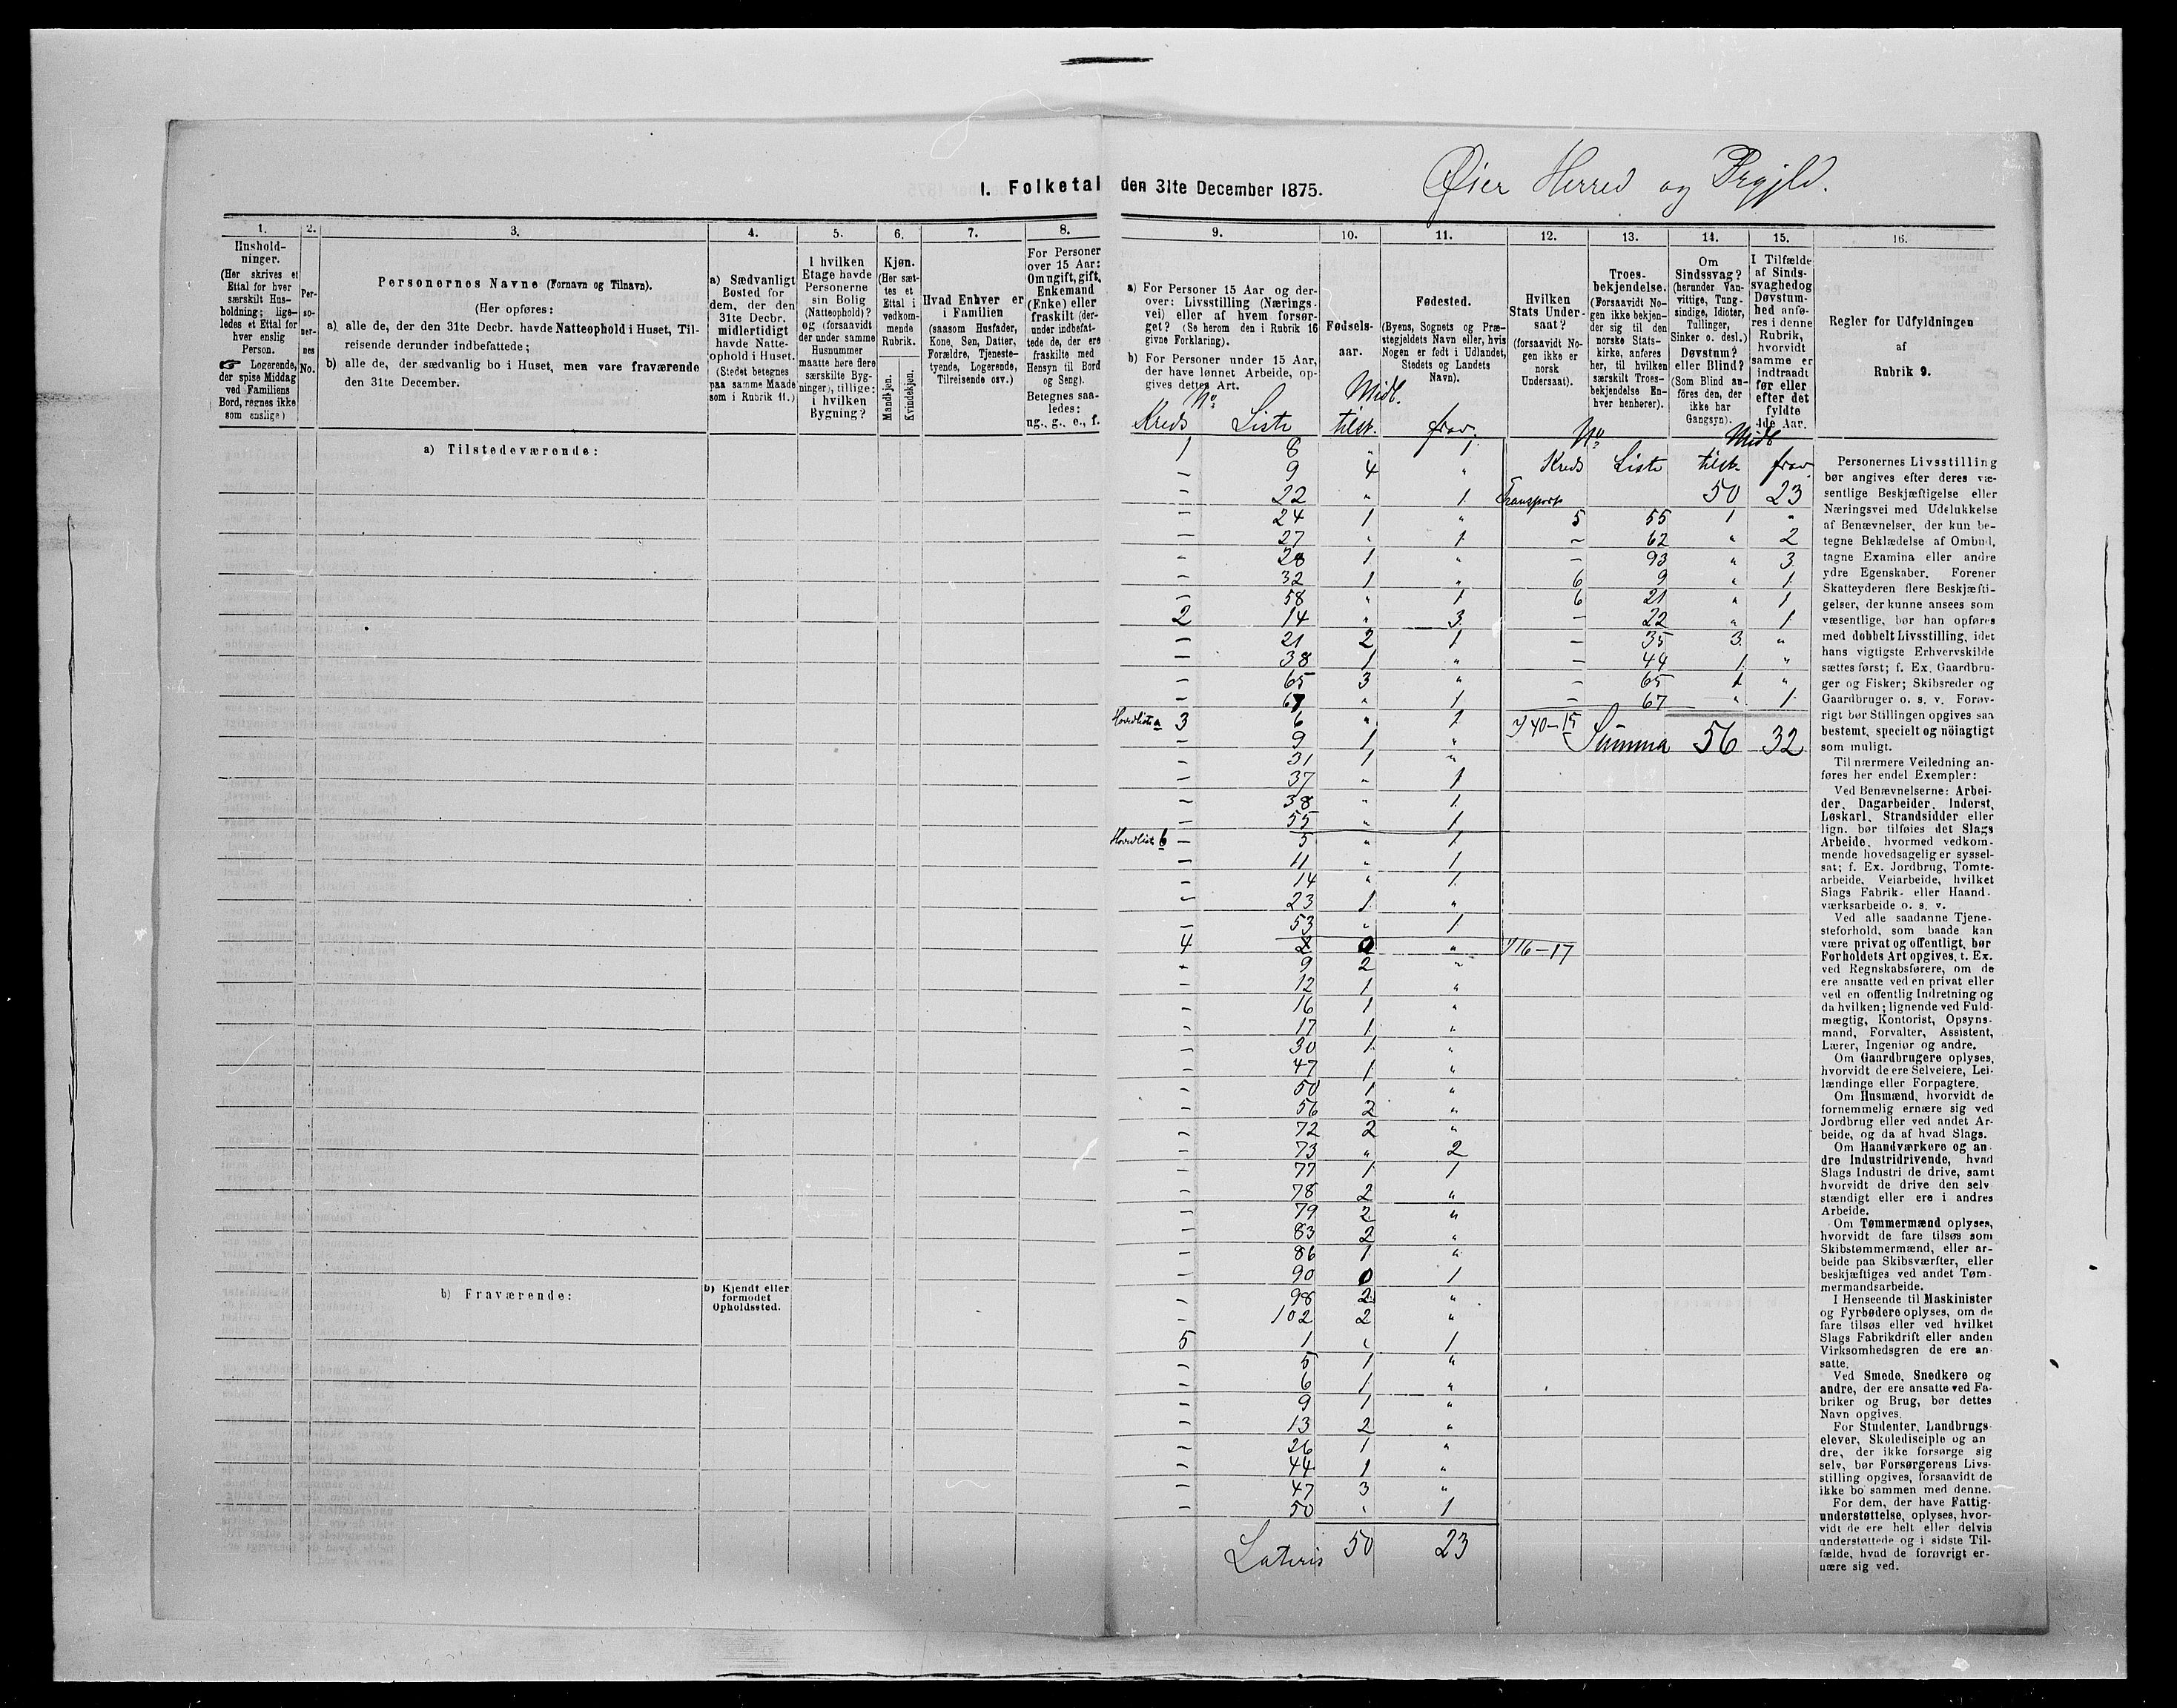 1. Folketal den 31te December 1875.
Øier Herred og Prgjld.
1.
2.
3.
4.
5.
6.
7.
8.
9.
10.
11.
12.
13.
14.
15.
16.
Hushold-
ninger.
(Her skrives et
Ettal for hver
særskilt Hus-
holdning; lige-
ledes et Ettal for
hver enslig
Person.
☞ Logerende,
der spise Middag
ved Familiens
Bord, regnes ikke
som enslige)
Per-
so-
ner-
nes
No.
Personernes Navne (Fornavn og Tilnavn).
(Her opføres:
a) alle de, der den 31te Decbr. havde Natteophold i Huset, Til-
reisende derunder indbefattede;
b) alle de, der sædvanlig bo i Huset, men vare fraværende
den 31te December.
a) Sædvanligt
Bosted for
dem, der den
31te Decbr.
midlertidigt
havde Natte-
ophold i Huset.
(Stedet betegnes
paa samme Maade
som i Rubrik 11.)
I hvilken
Etage havde
Personerne
sin Bolig
(Natteophold)?
og (forsaavidt
der under samme
Husnummer
maatte høre flere
særskilte Byg-
ninger), tillige:
i hvilken
Bygning?
Kjøn.
(Her sæt-
tes et
Ettal i
vedkom-
mende
Rubrik.
Mandkjøn.
Kvindekjøn.
Hvad Enhver er
i Familien
(saasom Husfader,
Kone, Søn, Datter,
Forældre, Tjeneste-
tyende, Logerende,
Tilreisende osv.)
For Personer
over 15 Aar:
Om ugift, gift,
Enkemand
(Enke) eller
fraskilt (der-
under indbefat-
tede de, der ere
fraskilte med
Hensyn til Bord
og Seng).
Betegnes saa-
ledes:
ug., g., e., f.
a) For Personer 15 Aar og der-
over: Livsstilling (Nærings-
vei) eller af hvem forsør-
get? (Se herom den i Rubrik 16
givne Forklaring).
b) For Personer under 15 Aar,
der have lønnet Arbeide, op-
gives dettes Art.
Fødsels-
aar.
Fødested.
(Byens, Sognets og Præ-
stegjeldets Navn eller, hvis
Nogen er født i Udlandet,
Stedets og Landets
Navn).
Hvilken
Stats Under-
saat?
(forsaavidt No-
gen ikke er
norsk
Undersaat).
Troes-
bekjendelse.
(Forsaavidt No-
gen ikke bekjen-
der sig til den
norske Stats-
kirke, anføres
her, til hvilken
særskilt Troes-
bekjendelse En-
hver henhører).
Om
Sindssvag?
(herunder Van-
vittige, Tung-
sindige, Idioter,
Tullinger,
Sinker o. desl.)
Døvstum?
eller Blind?
(Som Blind an-
føres den, der
ikke har
Gangsyn).
I Tilfælde
af Sinds-
svaghed og
Døvstum-
hed anfø-
res i denne
Rubrik,
hvorvidt
samme er
indtraadt
før eller
efter det
fyldte
4de Aar.
Regler for Udfyldningen
af
Rubrik 9.
No Midl.
Kreds Liste tilst. frav.
1 8 " 1
— 9 4 "
— 22 " 1
— 24 1 "
— 27 " 1
— 28 1 "
— 32 1 "
— 58 " 1
2 14 " 3
— 21 2 1
— 38 1 "
— 65 3 "
— 67 " 1
Hovedliste a 3 6 " 1
— 9 1 "
— 31 1 "
— 37 " 1
— 38 " 1
— 55 " 1
Hovedliste b — 5 " 1
— 11 " 1
— 14 " 1
— 23 1 "
— 53 " 1
4 2 0 "
— 9 2 "
— 12 1 "
— 16 1 "
— 17 1 "
— 30 1 "
— 47 1 "
— 50 1 "
— 56 2 "
— 72 2 "
— 73 " 2
— 77 1 1
— 78 2 "
— 79 2 "
— 83 2 "
— 86 1 "
— 90 0 1
— 98 2 "
— 102 2 "
5 1 " 1
— 5 1 "
— 6 1 "
— 9 1 "
— 13 2 "
— 26 1 "
— 44 1 "
— 47 3 "
— 50 " 1
Lateris 50 23
No Midl
Kreds Liste tilst. frav
Transport 50 23
5 55 1 "
— 62 " 2
— 93 " 3
6 9 " 1
6 21 " 1
— 22 " 1
— 35 3 "
— 44 1 "
— 65 1 "
— 67 " 1
40—15
Summa 56 32
16—17
a) Tilstedeværende:
b) Fraværende:
b) Kjendt eller
formodet
Opholdssted.
Personernes Livsstilling
bør angives efter deres væ-
sentlige Beskjæftigelse eller
Næringsvei med Udelukkelse
af Benævnelser, der kun be-
tegne Beklædelse af Ombud,
tagne Examina eller andre
ydre Egenskaber. Forener
Skatteyderen flere Beskjæfti-
gelser, der kunne ansees som
væsentlige, bør han opføres
med dobbelt Livsstilling, idet
hans vigtigste Erhvervskilde
sættes først; f. Ex. Gaardbru-
ger og Fisker; Skibsreder og
Gaardbruger o. s. v. Forøv-
rigt bør Stillingen opgives saa
bestemt, specielt og nöiagtigt
som muligt.
Til nærmere Veiledning an-
føres her endel Exempler:
Ved Benævnelserne: Arbei-
der, Dagarbeider, Inderst,
Løskarl, Strandsidder eller
lign. bør tilføies det Slags
Arbeide, hvormed vedkom-
mende hovedsagelig er syssel-
sat; f. Ex. Jordbrug, Tomte-
arbeide, Veiarbeide, hvilket
Slags Fabrik- eller Haand-
værksarbeide o. s. v.
Ved alle saadanne Tjene-
steforhold, som baade kan
være privat og offentligt, bør
Forholdets Art opgives, t. Ex.
ved Regnskabsførere, om de
ere ansatte ved en privat eller
ved en offentlig Indretning og
da hvilken; lignende ved Fuld-
mægtig, Kontorist, Opsyns-
mand, Forvalter, Assistent,
Lærer, Ingeniør og andre.
Om Gaardbrugere oplyses,
hvorvidt de ere Selveiere, Lei-
lændinge eller Forpagtere.
Om Husmænd, hvorvidt de
fornemmelig ernære sig ved
Jordbrug eller ved andet Ar-
beide, og da af hvad Slags.
Om Haandværkere og an-
dre Industridrivende, hvad
Slags Industri de drive, samt
hvorvidt de drive den selv
stændigt eller ere i andres
Arbeide.
Om Tømmermænd oplyses,
hvorvidt de fare tilsøs som
Skibstømmermænd, eller ar-
beide paa Skibsværfter, eller
beskjæftiges ved andet Tøm-
mermandsarbeide.
I Henseende til Maskinister
og Fyrbødere oplyses, om de
fare tilsøs eller ved hvilket
Slags Fabrikdrift eller anden
Virksomhedsgren de ere an-
satte.
Ved Smede, Snedkere og
andre, der ere ansatte ved Fa-
briker og Brug, bør dettes
Navn opgives.
For Studenter, Landbrugs-
elever, Skoledisciple og an
dre, der ikke forsørge sig
selv, bør Forsørgerens Livs-
stilling opgives, forsaavidt de
ikke bo sammen med denne.
For dem, der have Fattig-
understøttelse, oplyses, hvor-
vidt de ere helt eller delvis
understøttede og i sidste Til-
fælde, hvad de forøvrigt er-
nære sig ved.